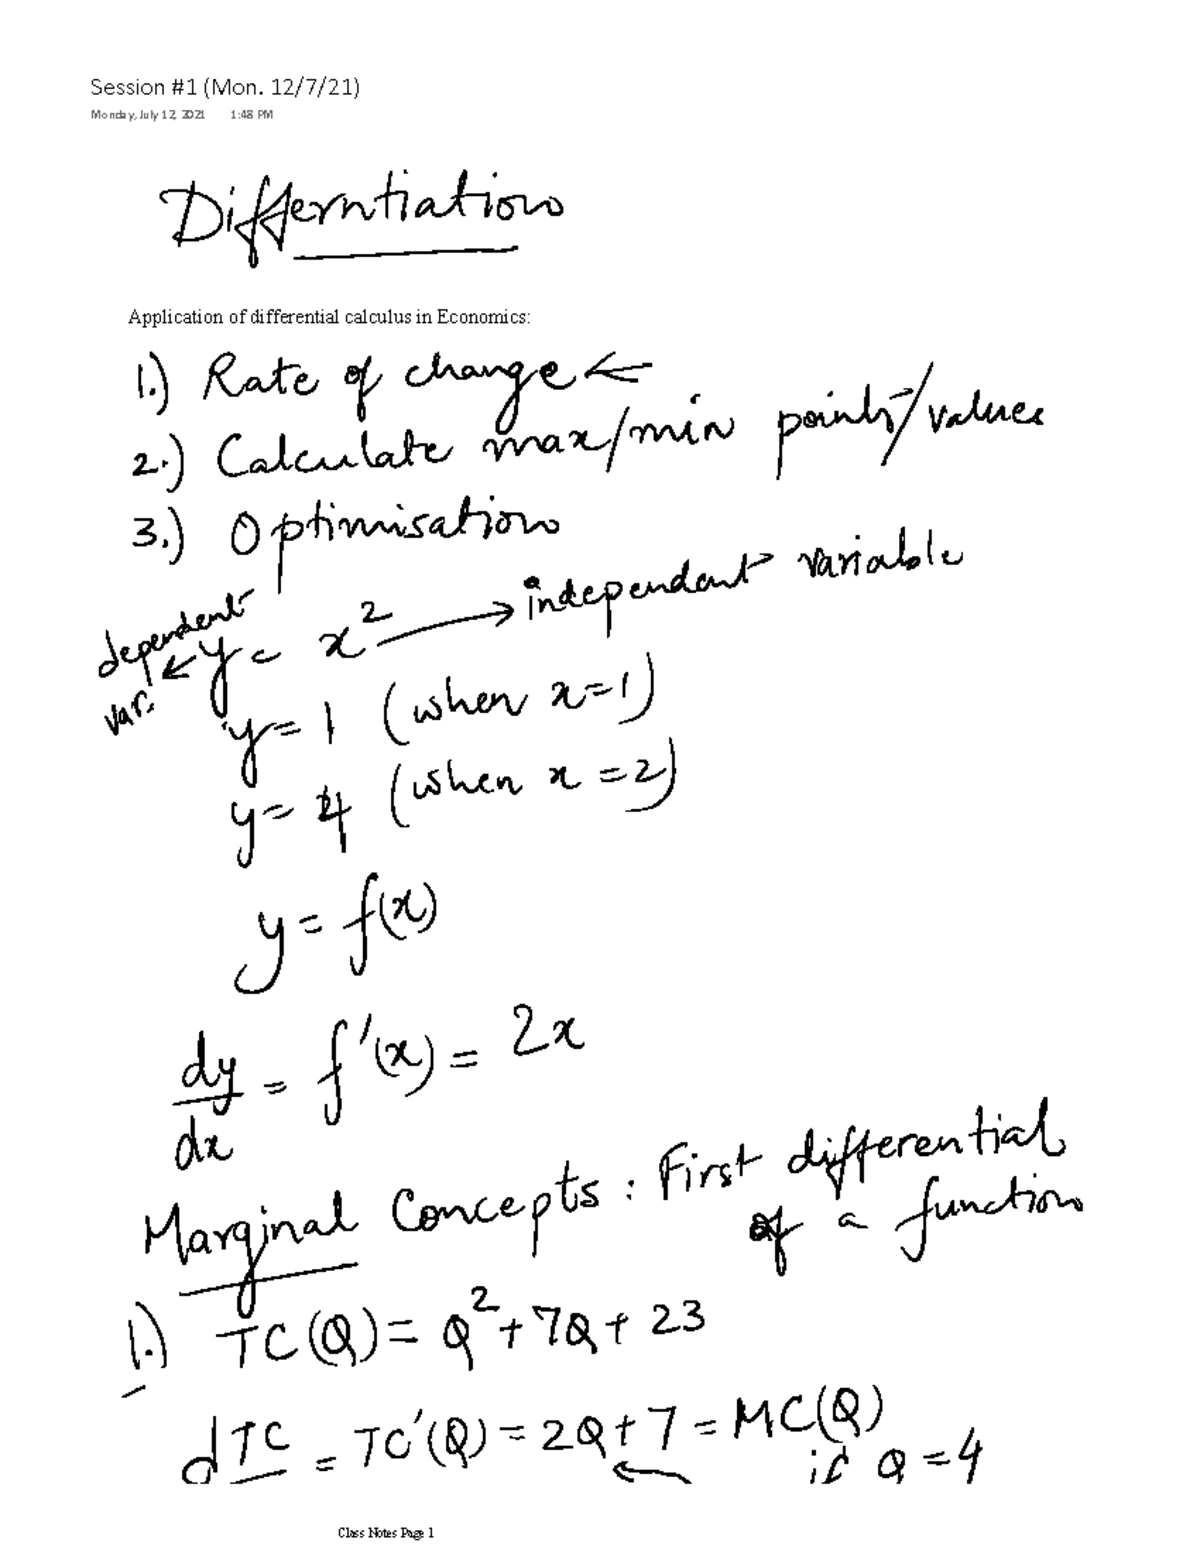 Session #1 (Mon. 12/7/21)
Monday, July 12, 2021 1:48 PM
Differntiation
Application of differential calculus in Economics:
1.) Rate of change ←
2.) Calculate max/min points/values
3.) Optimisation
dependent var. ← y = x² → independent variable
y = 1 (when x=1)
y = 4 (when x = 2)
y = f(x)
dy/dx = f'(x) = 2x
Marginal Concepts : First differential
of a function
1.) TC(Q) = Q² + 7Q + 23
dTC = TC'(Q) = 2Q + 7 = MC(Q)
if Q = 4
Class Notes Page 1